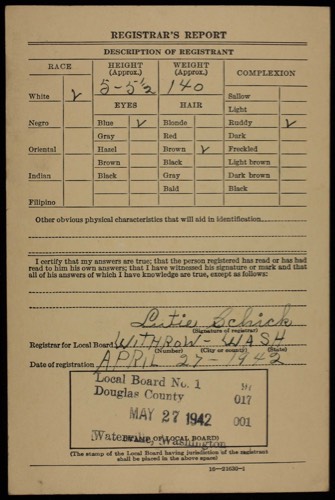 REGISTRAR'S REPORT
DESCRIPTION OF REGISTRANT
RACE
HEIGHT (Approx.)
WEIGHT (Approx.)
COMPLEXION
5-5½
140
White ✓
Sallow
Light
EYES
HAIR
Negro
Blue ✓
Blonde
Ruddy ✓
Gray
Red
Dark
Oriental
Hazel
Brown ✓
Freckled
Brown
Black
Light brown
Indian
Black
Gray
Dark brown
Bald
Black
Filipino
Other obvious physical characteristics that will aid in identification
I certify that my answers are true; that the person registered has read or has had
read to him his own answers; that I have witnessed his signature or mark and that
all of his answers of which I have knowledge are true, except as follows:
Lutie Schick
(Signature of registrar)
Registrar for Local Board WITHROW - WASH
(Number) (City or county) (State)
Date of registration APRIL 27-1942
Local Board No. 1
Douglas County
017
MAY 27 1942 001
Waterville, Washington
(STAMP OF LOCAL BOARD)
(The stamp of the Local Board having jurisdiction of the registrant
shall be placed in the above space)
16-21630-1